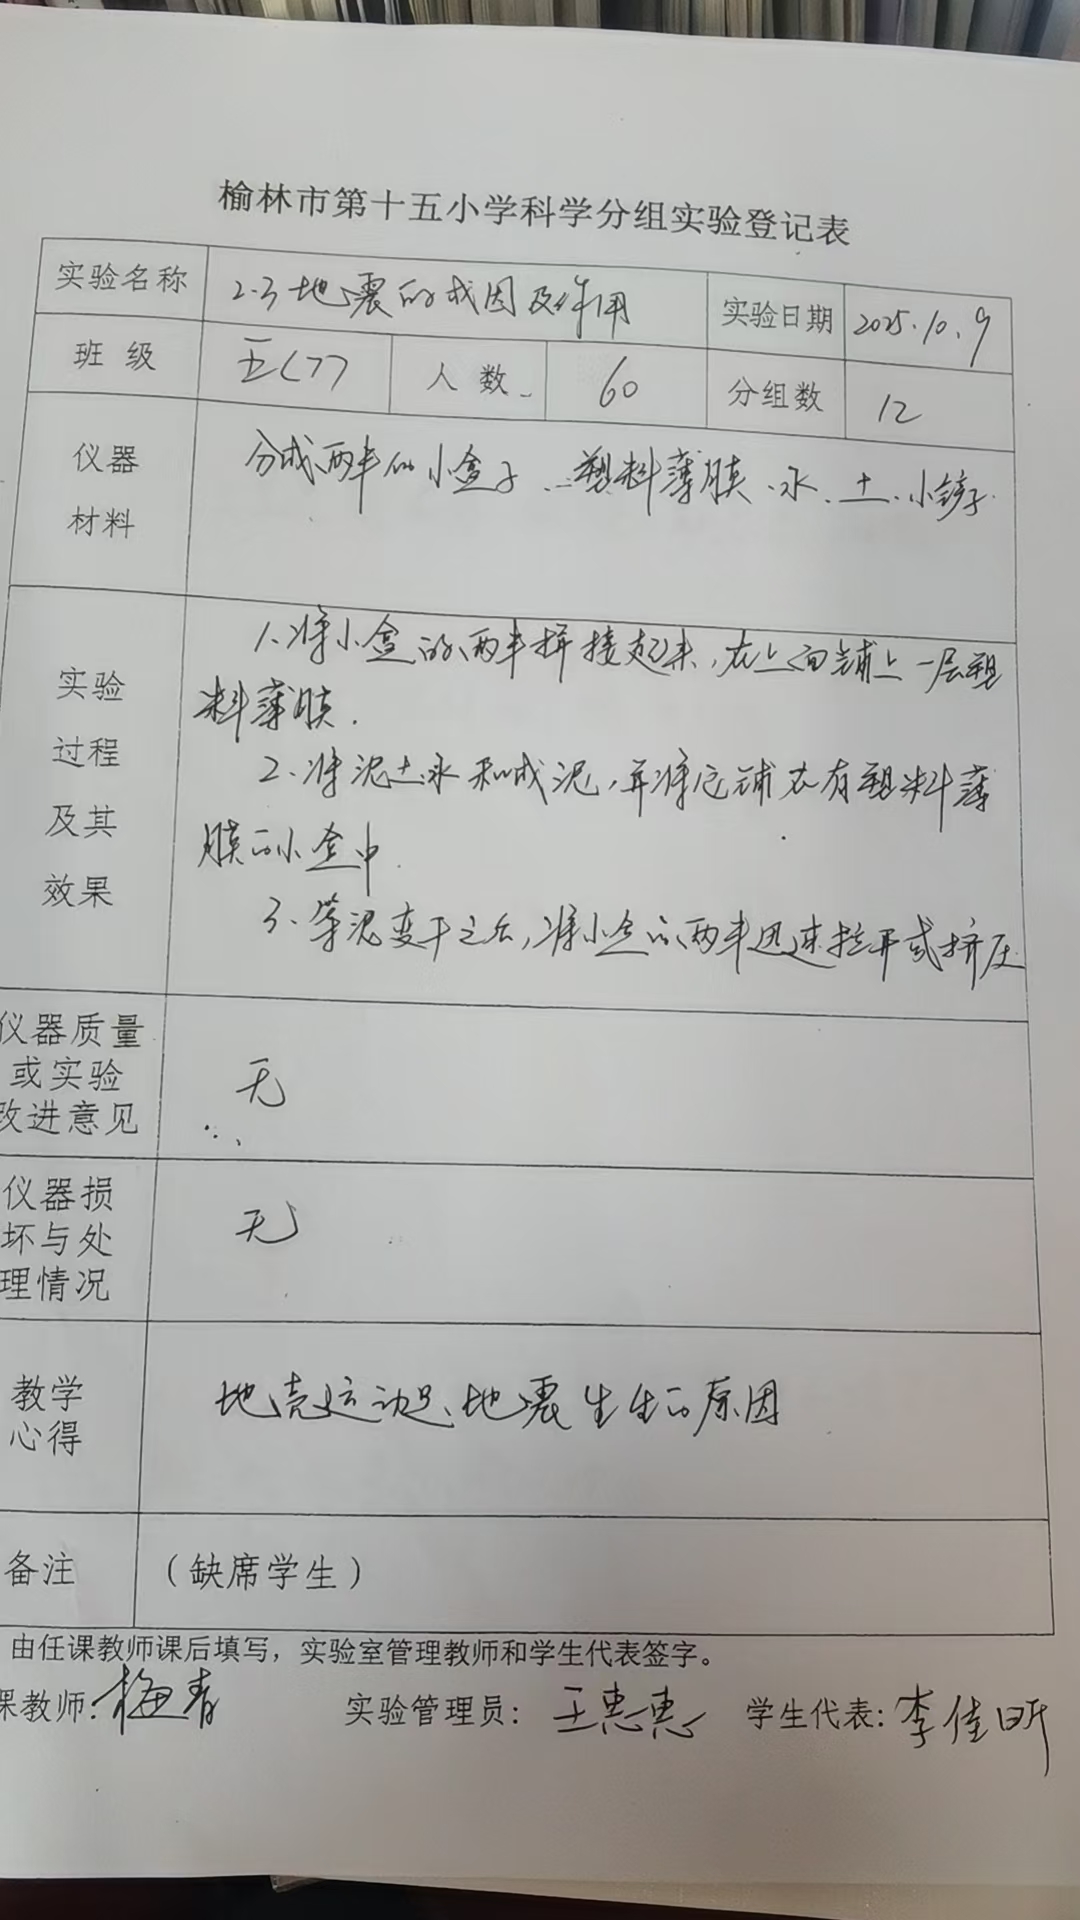 榆林市第十五小学科学分组实验登记表
实验名称 2.3地震的成因及作用 实验日期 2025.10.9
班级 五(7) 人数 60 分组数 12
仪器 分成两半的小盒子、塑料薄膜、水、土、小铲子
材料
实验 1、将小盒的两半拼接起来,在上面铺上一层塑
料薄膜.
过程 2、将泥土水和成泥,并将它铺在有塑料薄
及其 膜的小盒中.
效果 3、等泥变干之后,将小盒的两半迅速拉开或挤压
仪器质量
或实验 无
改进意见
仪器损
坏与处 无
理情况
教学 地壳运动是地震生生的原因
心得
备注 (缺席学生)
由任课教师课后填写,实验室管理教师和学生代表签字。
课教师:梅青 实验管理员:王惠惠 学生代表:李佳昕